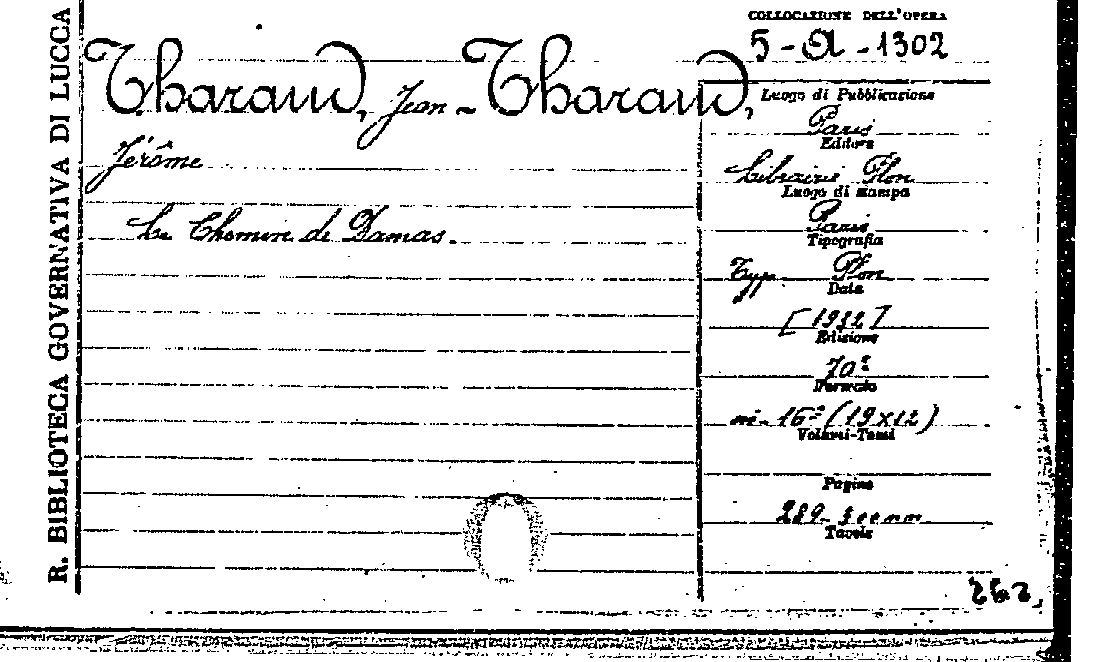 R. BIBLIOTECA GOVERNATIVA DI LUCCA
COLLOCAZIONE DELL'OPERA
5-A-1302
Tharaud, Jean - Tharaud,
Jérôme
Le Chemin de Damas.
Luogo di Pubblicazione
Paris
Editore
Librairie Plon
Luogo di stampa
Paris
Tipografia
Typ. Plon
Data
[1932]
Edizione
70ª
Formato
in-16º (19x12)
Volumi-Tomi
Pagine
289-
Tavole